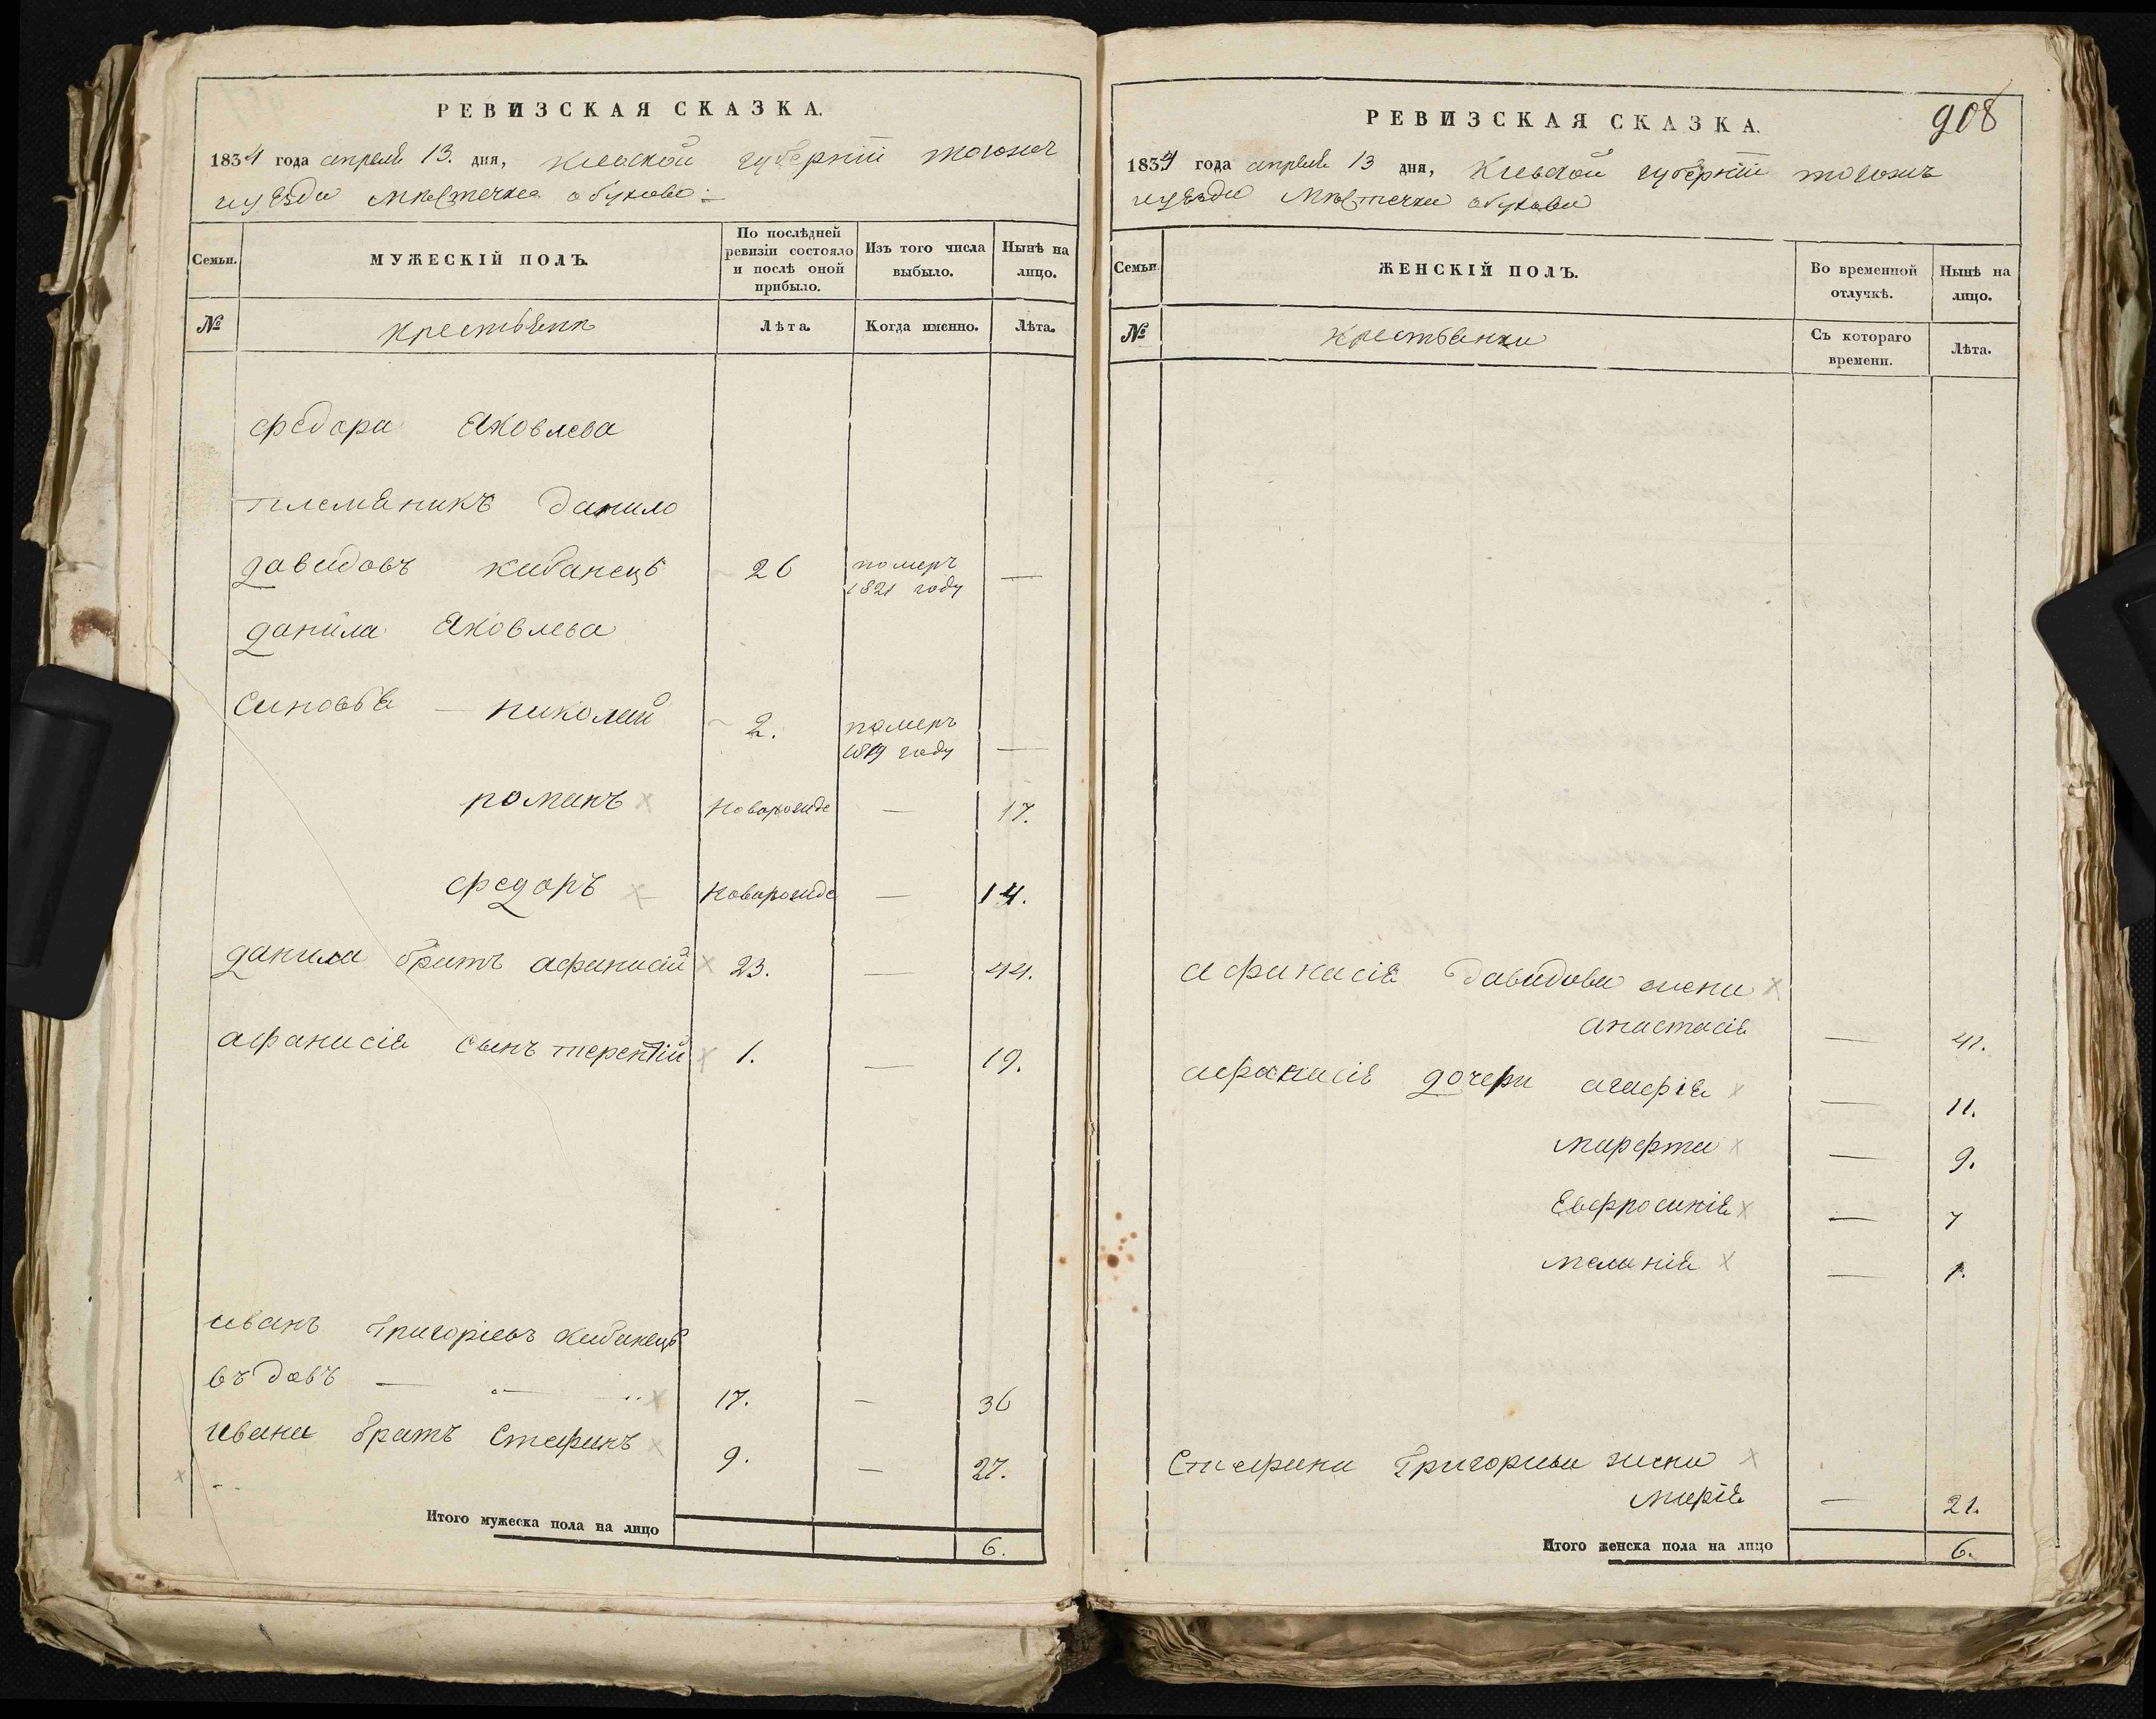 РЕВИЗСКАЯ СКАЗКА.
1834 года апреля 13. дня, Киевской губерніи тогожъ
уезда местечка обухова
Семьи.
МУЖЕСКІЙ ПОЛЪ.
По послѣдней ревизіи состояло и послѣ оной прибыло.
Изъ того числа выбыло.
Нынѣ на лицо.
№
крестьянъ
Лѣта.
Когда именно.
Лѣта.
федора Яковлева
племяникъ данило
давидовъ кибанецъ 26 померъ 1821 году —
данила Яковлева
синовья — николай 2. померъ 1819 году —
романъ новорожде — 17.
федоръ новорожде — 14.
данила братъ афанасий 23. — 44.
афанасія сынъ терентій 1. — 19.
иванъ григоріевъ кибанецъ
въдовъ — 17. — 36
ивана братъ Стефанъ 9. — 27.
Итого мужеска пола на лицо 6.
908
РЕВИЗСКАЯ СКАЗКА.
1834 года апреля 13 дня, Киевской губерніи тогожъ
уезда местечка обухова
Семьи.
ЖЕНСКІЙ ПОЛЪ.
Во временной отлучкѣ.
Нынѣ на лицо.
№
крестьянки
Съ котораго времени.
Лѣта.
афанасія давидова жена
анастасія — 41.
афанасія дочери агафія — 11.
марфта — 9.
Евфросинія — 7
меланія — 1.
Стефана Григорива жена
марія — 21.
Итого женска пола на лицо 6.